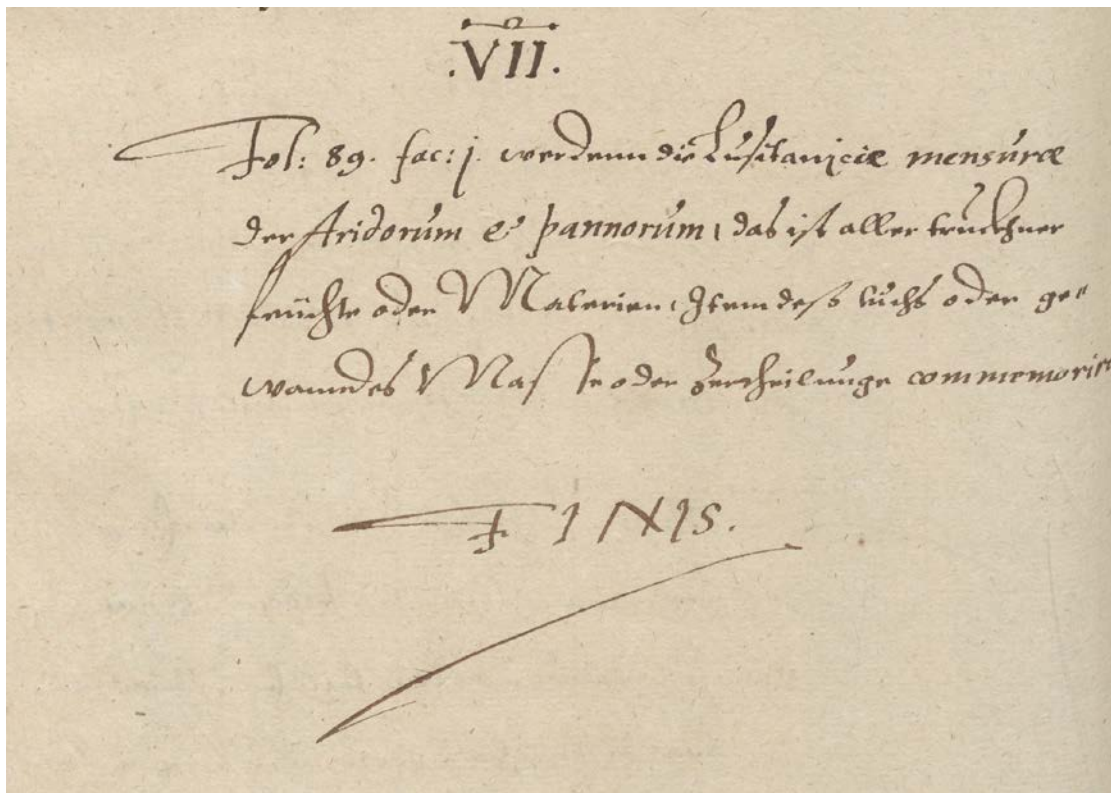 .VII.
Fol: 89. fac: j. werdenn die Lusitanicæ mensuræ
der Aridorum & pannorum, das ist aller truckhner
früchte oder Materien, Item deß tuchs oder ge„
wanndes Masse oder Zertheilunge commemorirt
FINIS.